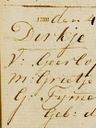 den 4
Dirkje
V: Geerlo
M: Grietje
G: Tijme
Geb: d